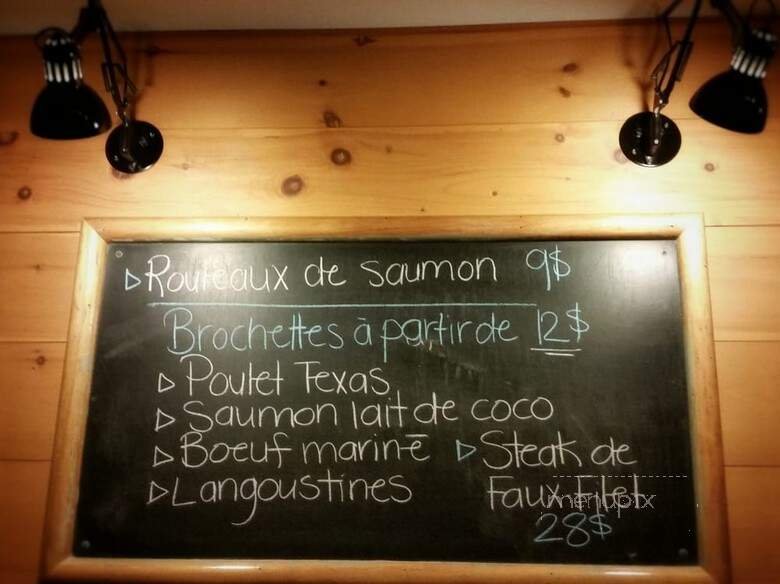 Rouleaux de saumon 9$
Brochettes à partir de 12$
Poulet Texas
Saumon lait de coco
Boeuf mariné
Steak de
Langoustines
Faux Filet
28$
menupix